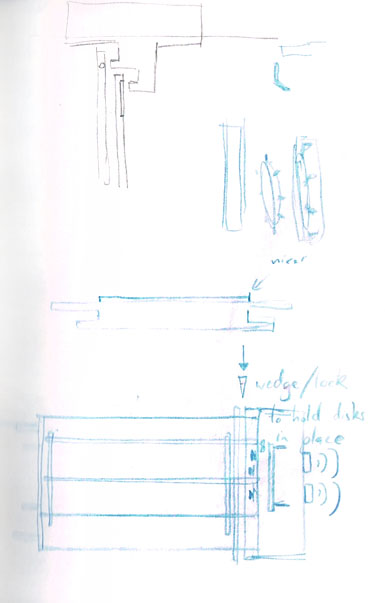 wedge/lock
to hold disks
in place